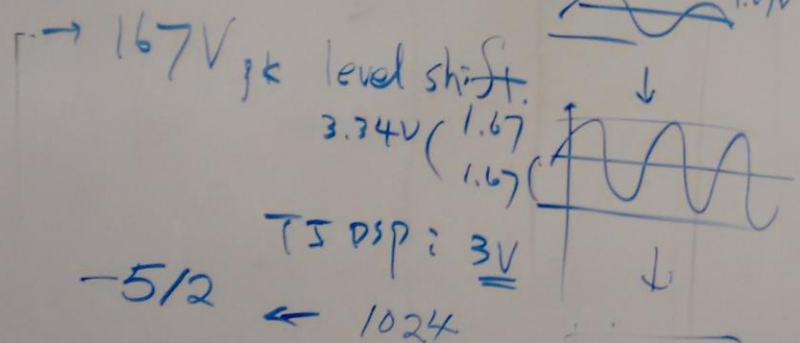 → 167V, pk level shift.
3.34V ( 1.67
1.67 (
TI DSP : 3V
-512 ← 1024